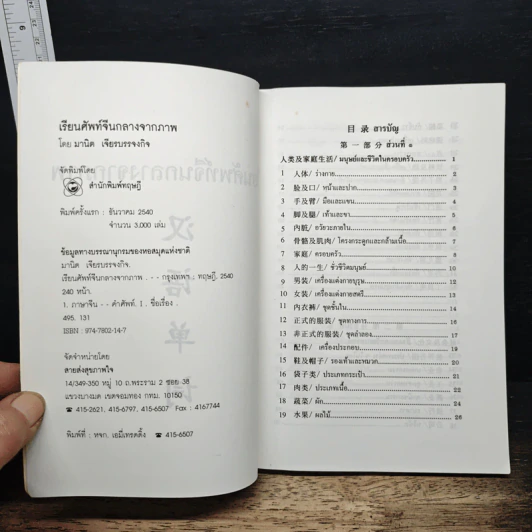 เรียนศัพท์จีนกลางจากภาพ
โดย มานิต เจียรบรรจงกิจ
จัดพิมพ์โดย
สำนักพิมพ์ทฤษฎี
พิมพ์ครั้งแรก : ธันวาคม 2540
จำนวน 3,000 เล่ม
ข้อมูลทางบรรณานุกรมของหอสมุดแห่งชาติ
มานิต เจียรบรรจงกิจ.
เรียนศัพท์จีนกลางจากภาพ . -- กรุงเทพฯ : ทฤษฎี, 2540
240 หน้า.
1. ภาษาจีน -- คำศัพท์. I. ชื่อเรื่อง.
495. 131
ISBN : 974-7802-14-7
จัดจำหน่ายโดย
สายส่งสุขภาพใจ
14/349-350 หมู่ 10 ถ.พระราม 2 ซอย 38
แขวงบางมด เขตจอมทอง กทม. 10150
☎ 415-2621, 415-6797, 415-6507 Fax : 4167744
พิมพ์ที่ : หจก. เอมี่เทรดดิ้ง ☎ 415-6507
目录 สารบัญ
第一部分 ส่วนที่ ๑
人类及家庭生活/ มนุษย์และชีวิตในครอบครัว 1
1 人体/ ร่างกาย 1
2 脸及口/ หน้าและปาก
3 手及臂/ มือและแขน
4 脚及腿/ เท้าและขา
5 内脏/ อวัยวะภายใน
6 骨骼及肌肉/ โครงกระดูกและกล้ามเนื้อ
7 家庭/ ครอบครัว
8 人的一生/ ชั่วชีวิตมนุษย์ 10
9 男装/ เครื่องแต่งกายบุรุษ
10 女装/ เครื่องแต่งกายสตรี
11 内衣裤/ ชุดชั้นใน
12 正式的服装/ ชุดทางการ
13 非正式的服装/ ชุดลำลอง
14 配件/ เครื่องประกอบ
15 鞋及帽子/ รองเท้าและหมวก 20
16 袋子类/ ประเภทกระเป๋า 21
17 肉类/ ประเภทเนื้อ 22
18 蔬菜/ ผัก 24
19 水果/ ผลไม้ 26